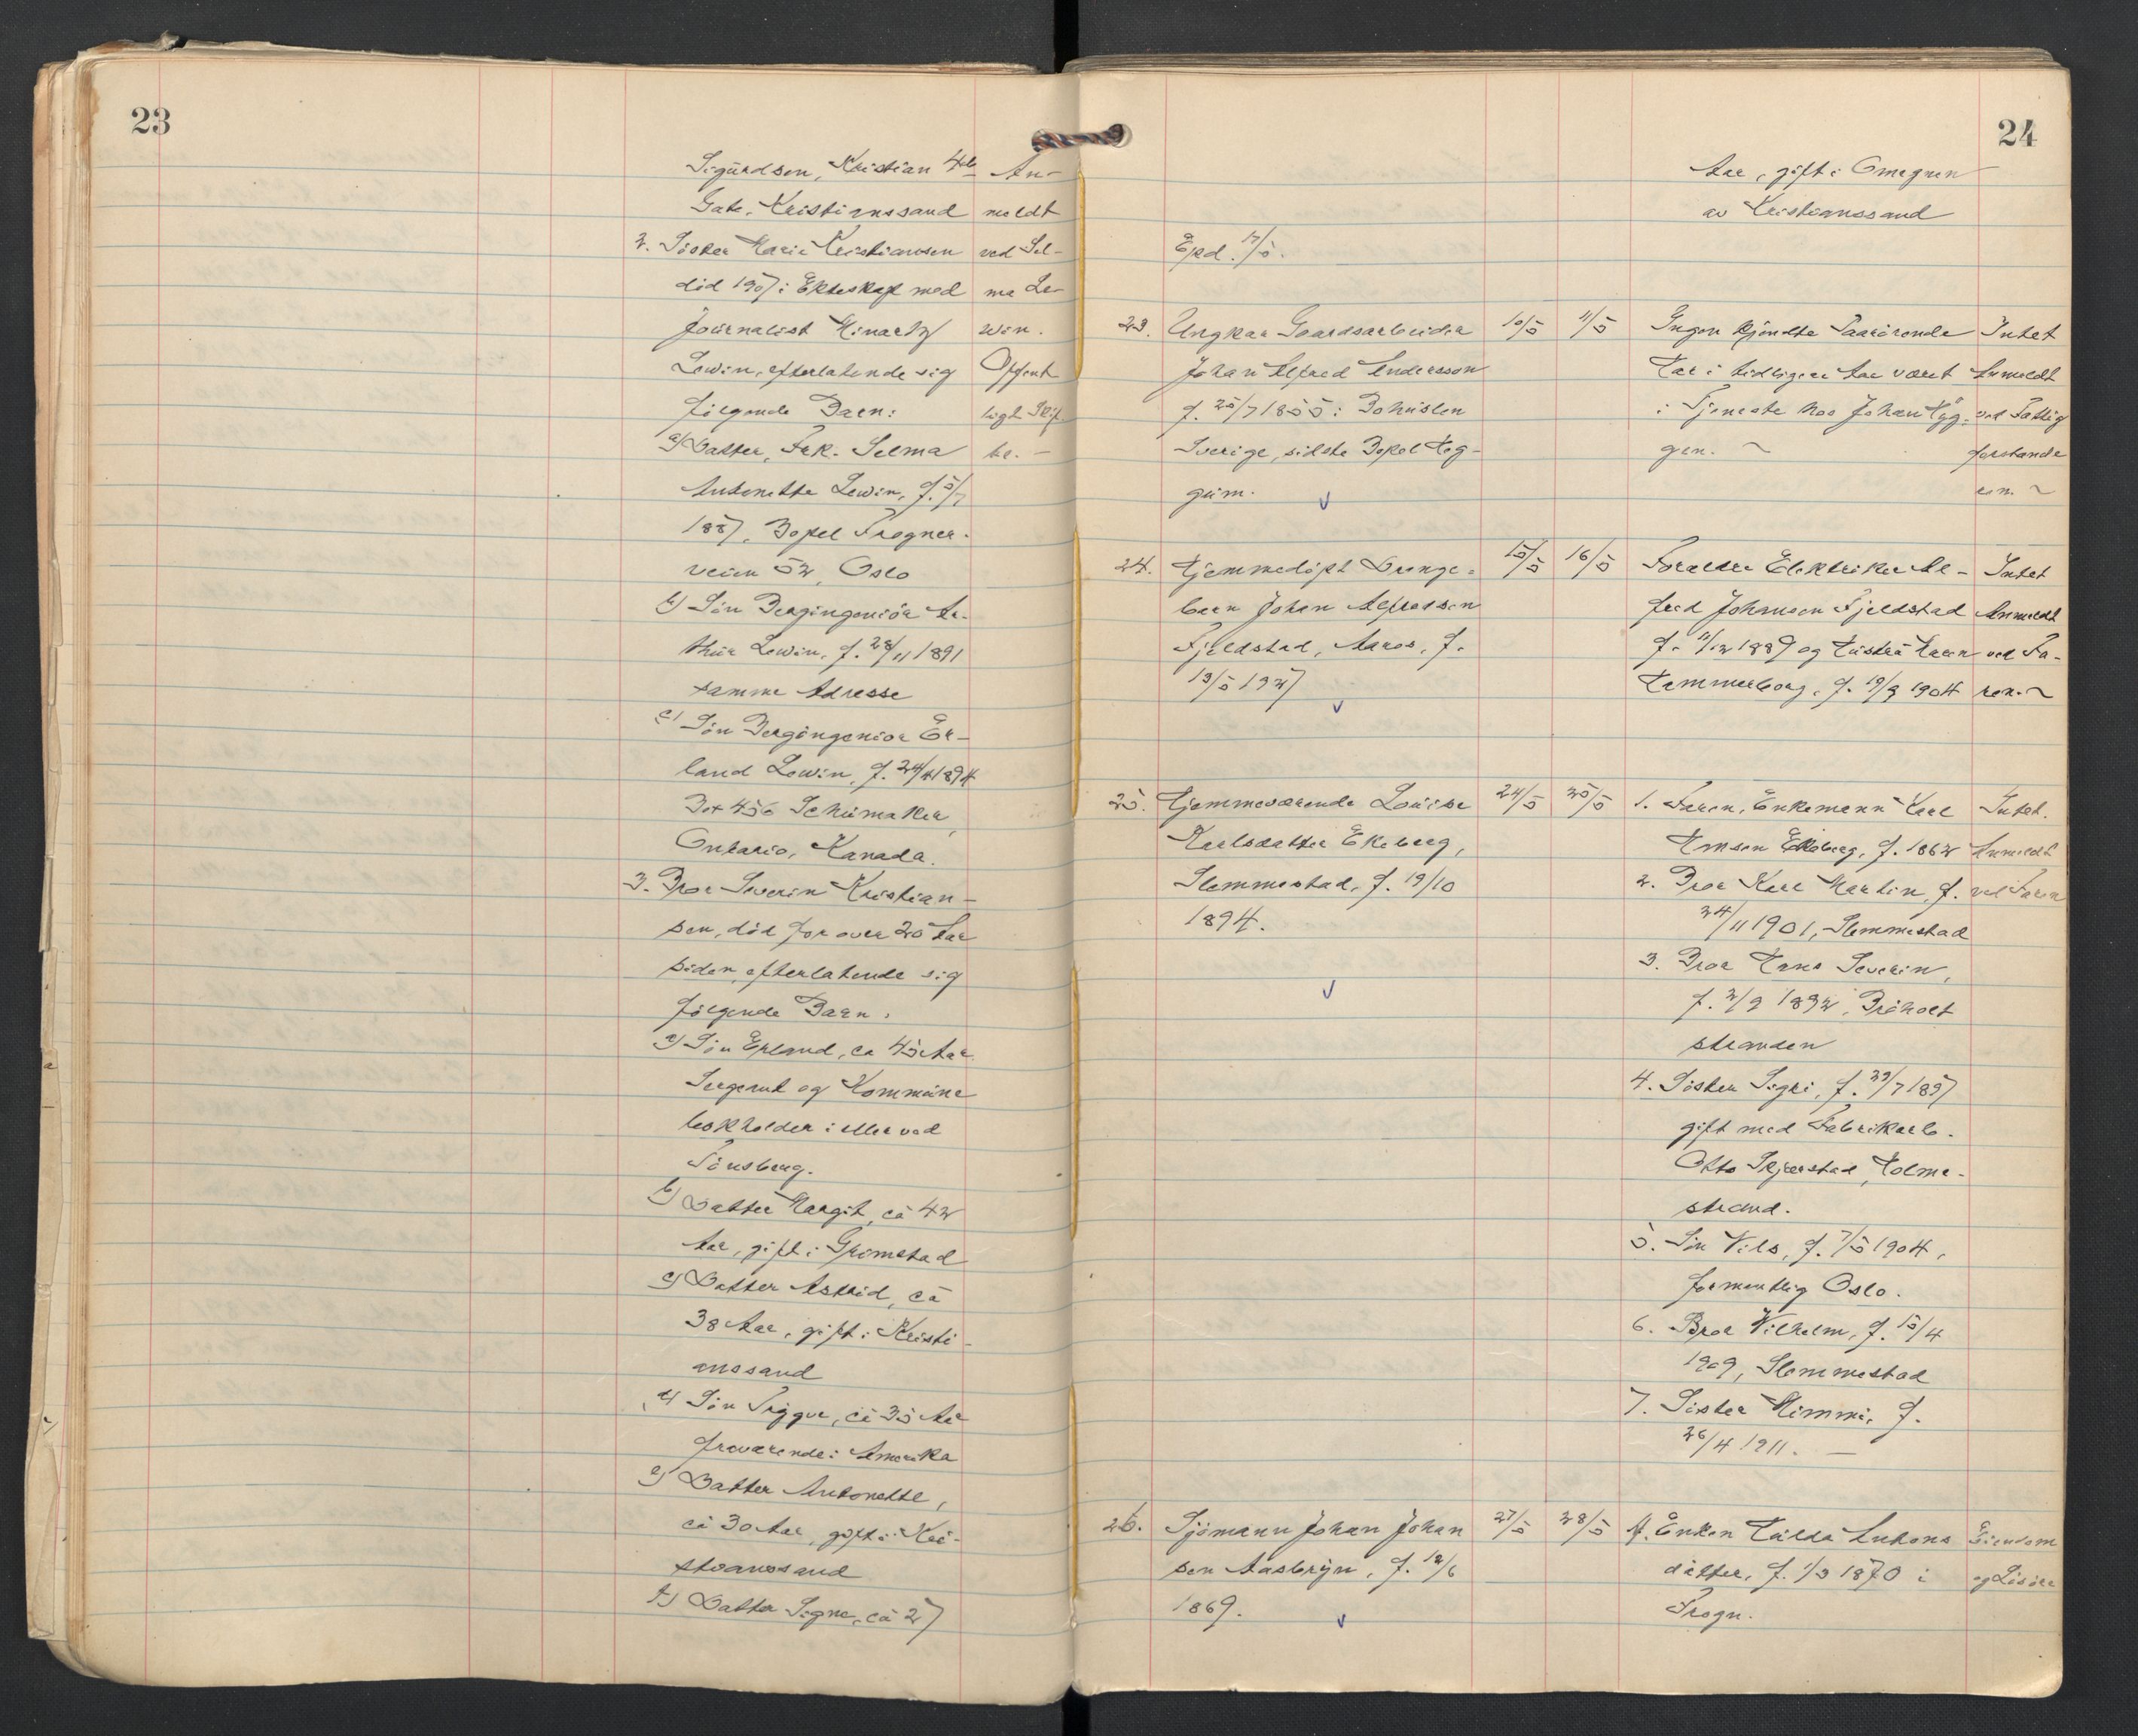 23
Sigurdsen, Kristian 4de
Gate, Kristianssand
2. Söster Marie Kristiansen
död 1907 i Ekteskap med
Journalist
Lewin, efterlatende sig
följende Barn:
a) Datter, Frk. Selma
Antonette Lewin, f. 5/7
1887, Bopel Frogner-
veien 52, Oslo
b) Sön Bergingeniör Ar-
thur Lewin, f. 28/11 1891
samme Adresse
c) Sön Bergingeniör Er-
land Lewin, f. 24/4 1894
Box 456 Schumaker,
Ontario, Kanada.
3. Bror Severin Kristian-
sen, död for over 20 Aar
siden, efterlatende sig
följende Barn:
a) Sön Erland, ca 45 Aar
Sergeant og Kommune
bokholder i eller ved
Tönsberg.
b) Datter Margit, ca 42
Aar, gift i Grimstad
c) Datter Astrid, ca
38 Aar, gift i Kristi-
anssand
d) Sön Trygve, ca 35 Aar
fraværende i Amerika
e) Datter Antonette,
ca 30 Aar, gift i Kri-
stianssand
f) Datter Signe, ca 27
An-
meldt
ved Sel-
ma Le-
win.
Offent
ligt Skif
te. -
24
Aar, gift i Omegnen
av Kristianssand
Exp. 17/5.
23. Ungkar Gaardsarbeider
Johan Alfred Andersson
f. 25/7 1855 i Bohuslen
Sverige, sidste Bopel Hög-
gum.
10/5 11/5
Ingen kjendte Paarörende
Har i tidligere Aar været
i Tjeneste hos Johan Hög-
gen. ~
Intet
Anmeldt
ved Fattig
forstande
ren. ~
24. Hjemmedöpt Drenge-
barn Johan Alfredsen
Fjeldstad, Aaros, f.
13/5 1927
15/5 16/5
Foreldre Elektriker Al-
fred Johansen Fjeldstad
f. 11/12 1889 og Hustru Karen
Hammerborg, f. 19/9 1904
Intet
Anmeldt
ved Fa-
ren. ~
25. Hjemmeværende Louise
Karlsdatter Ekeberg,
Slemmestad, f. 19/10
1894.
24/5 25/5
1. Faren, Enkemann Karl
Hansen Ekeberg, f. 1862
2. Bror Karl Martin, f.
24/11 1901, Slemmestad
3. Bror Hans Severin,
f. 2/9 1892, Bröholt
stranden
4. Söster Sigri, f. 29/7 1897
gift med Fabrikarb.
Otto Skjerstad, Holme-
strand.
5. Sön Nils, f. 7/5 1904,
formentlig Oslo.
6. Bror Vilhelm, f. 15/4
1909, Slemmestad
7. Söster Mimmi, f.
26/4 1911. -
Intet.
Anmeldt
ved Faren
26. Sjömann Johan Johan
sen Aasbryn, f. 12/6
1869.
27/5 28/5
1. Enken Hulda Antons
datter, f. 1/3 1870 i
Frogn.
Eiendom
og Lösöre